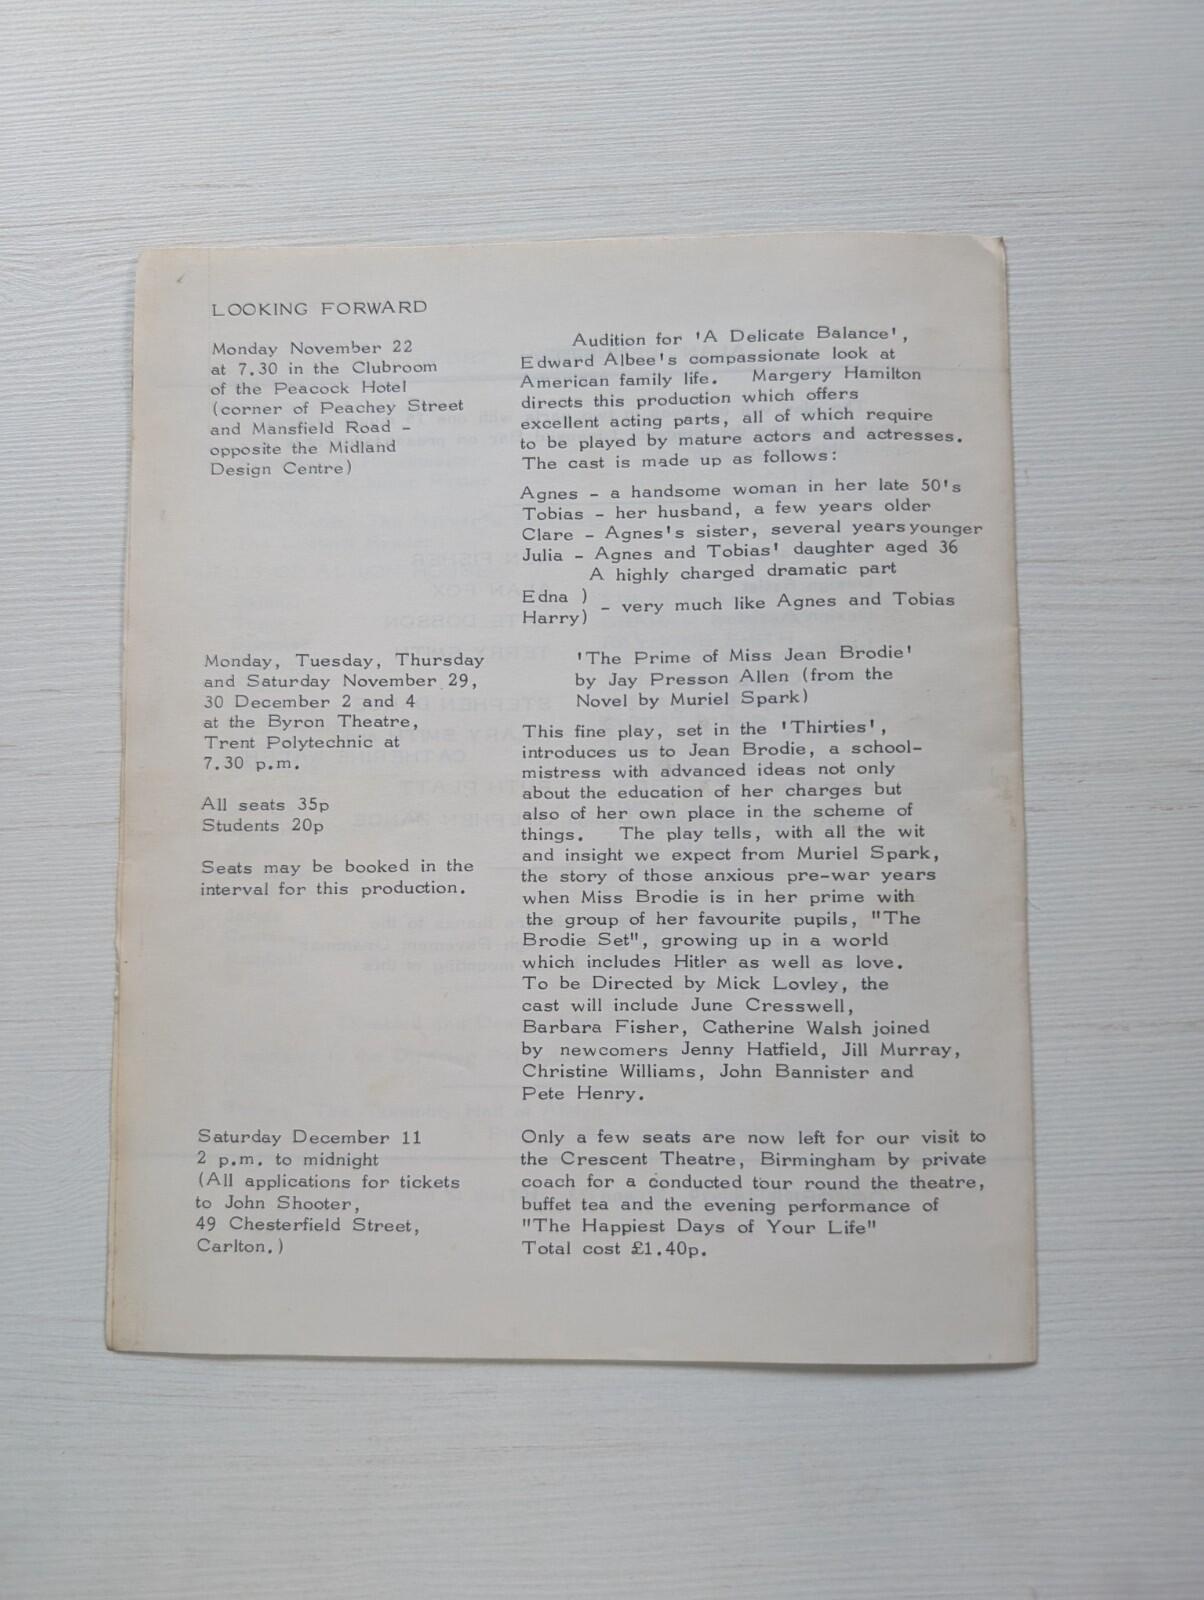 LOOKING FORWARD
Monday November 22
at 7.30 in the Clubroom
of the Peacock Hotel
(corner of Peachey Street
and Mansfield Road -
opposite the Midland
Design Centre)
Audition for 'A Delicate Balance',
Edward Albee's compassionate look at
American family life. Margery Hamilton
directs this production which offers
excellent acting parts, all of which require
to be played by mature actors and actresses.
The cast is made up as follows:
Agnes - a handsome woman in her late 50's
Tobias - her husband, a few years older
Clare - Agnes's sister, several years younger
Julia - Agnes and Tobias' daughter aged 36
A highly charged dramatic part
Edna )
- very much like Agnes and Tobias
Harry)
Monday, Tuesday, Thursday
and Saturday November 29,
30 December 2 and 4
at the Byron Theatre,
Trent Polytechnic at
7.30 p.m.
All seats 35p
Students 20p
Seats may be booked in the
interval for this production.
'The Prime of Miss Jean Brodie'
by Jay Presson Allen (from the
Novel by Muriel Spark)
This fine play, set in the 'Thirties',
introduces us to Jean Brodie, a school-
mistress with advanced ideas not only
about the education of her charges but
also of her own place in the scheme of
things. The play tells, with all the wit
and insight we expect from Muriel Spark,
the story of those anxious pre-war years
when Miss Brodie is in her prime with
the group of her favourite pupils, "The
Brodie Set", growing up in a world
which includes Hitler as well as love.
To be Directed by Mick Lovley, the
cast will include June Cresswell,
Barbara Fisher, Catherine Walsh joined
by newcomers Jenny Hatfield, Jill Murray,
Christine Williams, John Bannister and
Pete Henry.
Saturday December 11
2 p.m. to midnight
(All applications for tickets
to John Shooter,
49 Chesterfield Street,
Carlton.)
Only a few seats are now left for our visit to
the Crescent Theatre, Birmingham by private
coach for a conducted tour round the theatre,
buffet tea and the evening performance of
"The Happiest Days of Your Life"
Total cost £1.40p.